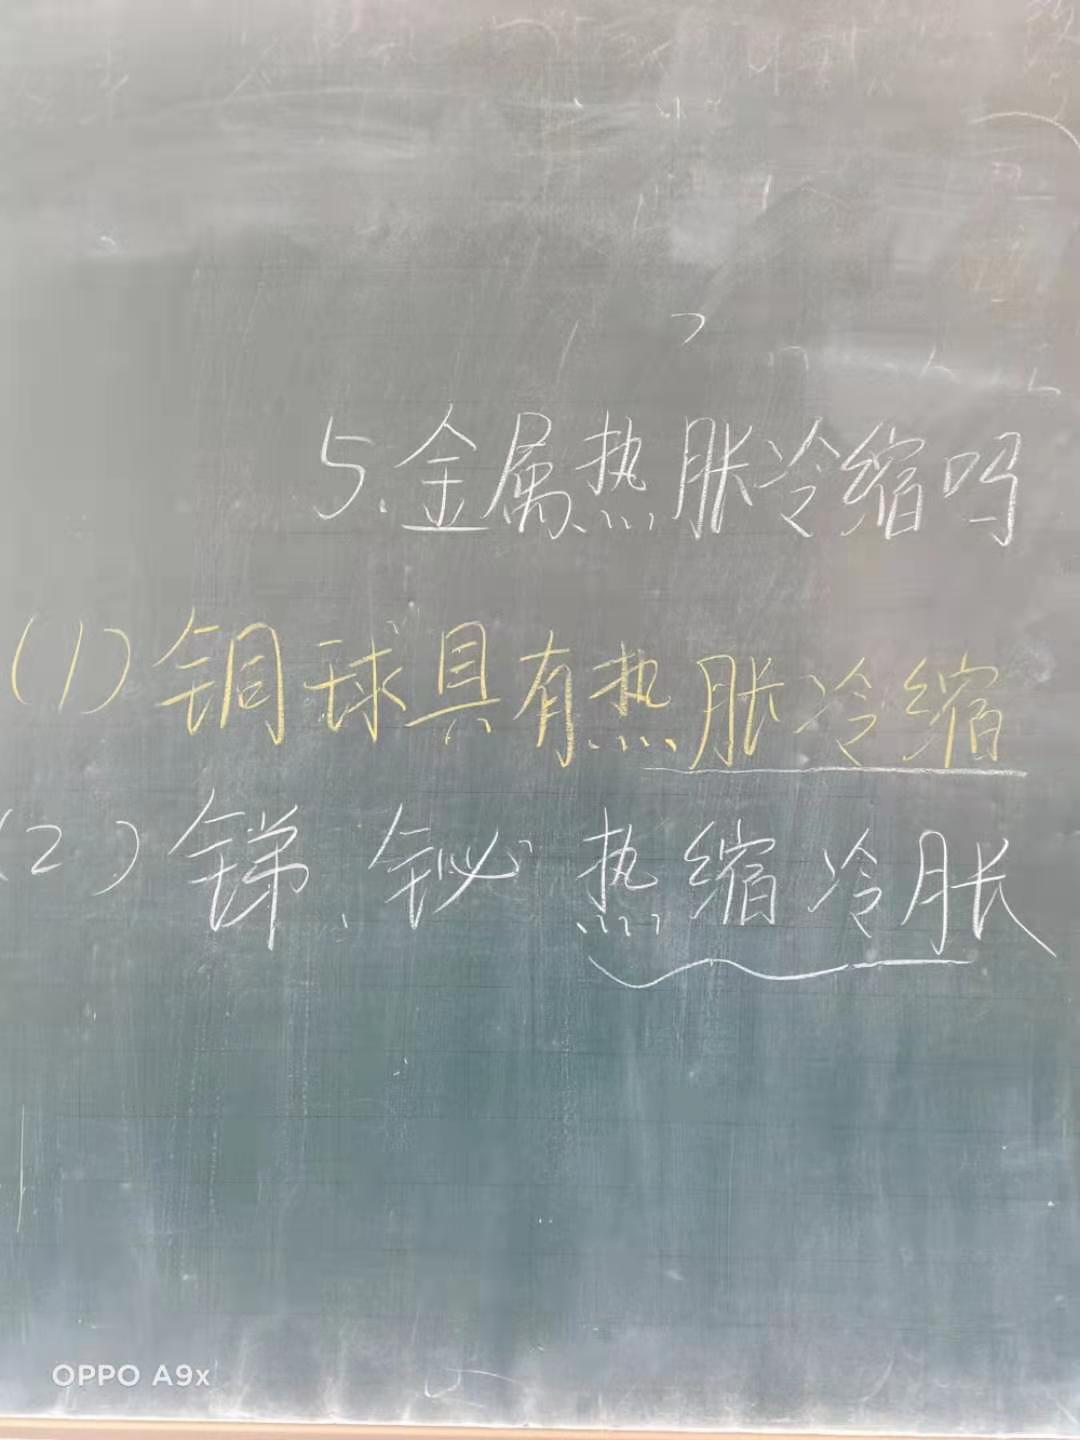 5.金属热胀冷缩吗
(1)铜球具有热胀冷缩
(2)锑、铋 热缩冷胀
OPPO A9x